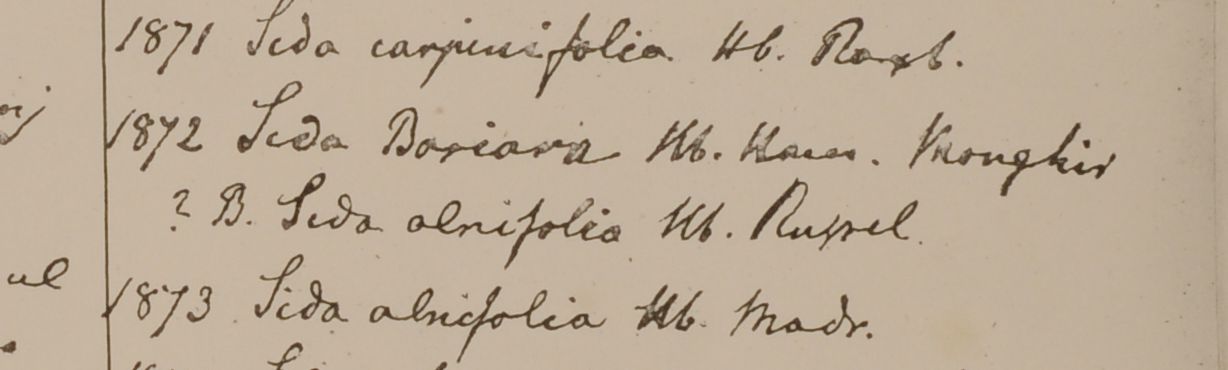 1871 Sida carpinifolia Hb. Roxb.
1872 Sida Bariara Hb. Ham. Monghir
? B. Sida alnifolia Hb. Russel
ul
1873 Sida alnifolia Hb. Madr.